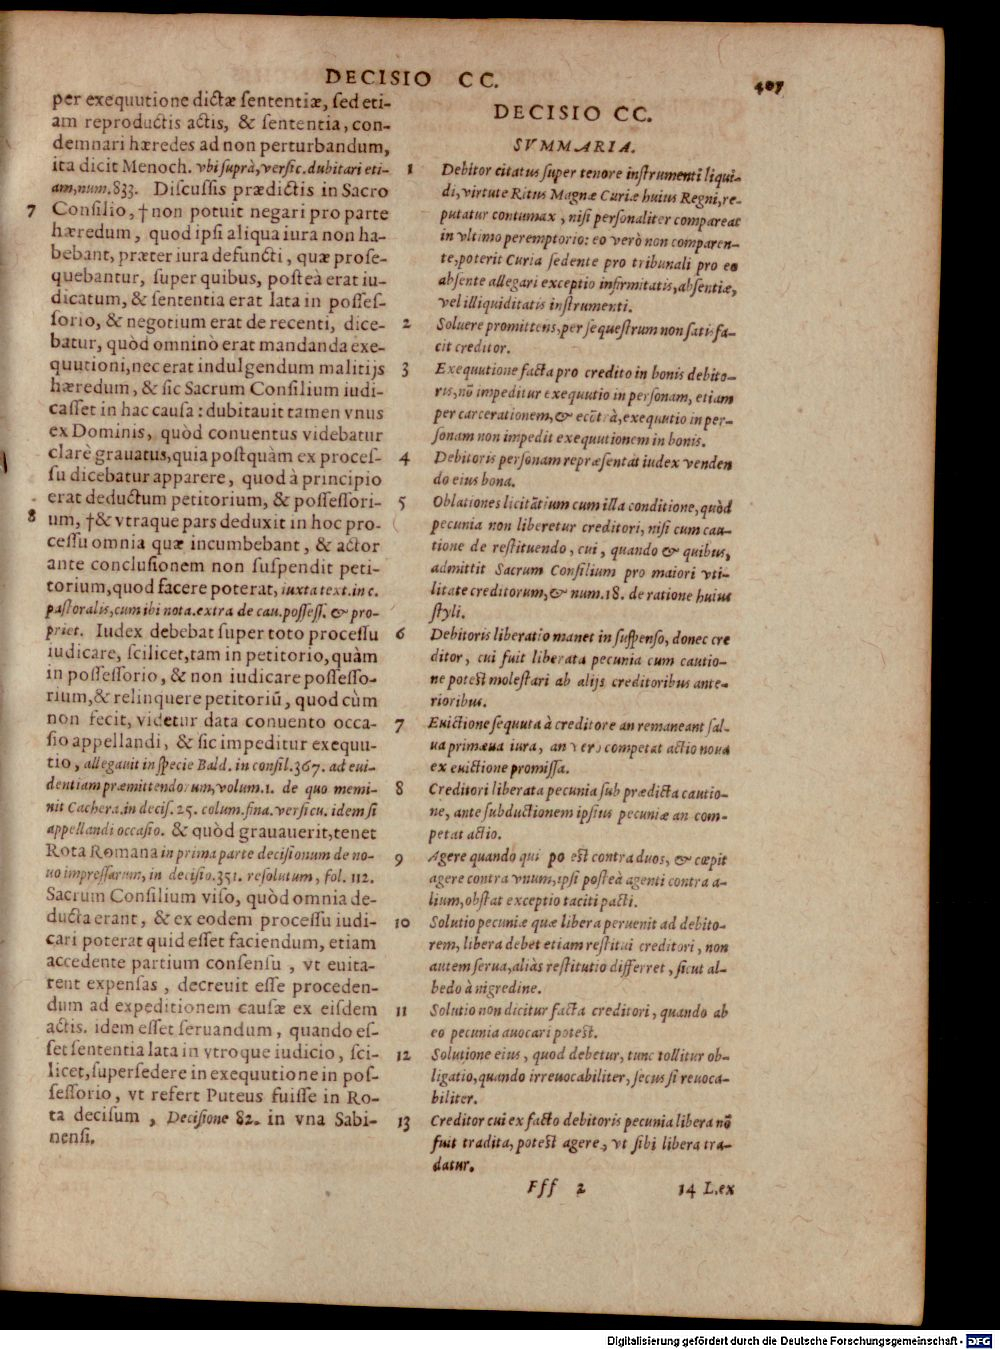 DECISIO CC.
407
per exequutione dictæ sententiæ, sed eti-
am reproductis actis, & sententia, con-
demnari hæredes ad non perturbandum,
ita dicit Menoch. vbi suprà, versic. dubitari eti-
am, num. 833. Discussis prædictis in Sacro
7 Consilio, † non potuit negari pro parte
hæredum, quod ipsi aliqua iura non ha-
bebant, præter iura defuncti, quæ prose-
quebantur, super quibus, posteà erat iu-
dicatum, & sententia erat lata in posses-
sorio, & negotium erat de recenti, dice-
batur, quòd omninò erat mandanda exe-
quutioni, nec erat indulgendum malitijs
hæredum, & sic Sacrum Consilium iudi-
casset in hac causa: dubitauit tamen vnus
ex Dominis, quòd conuentus videbatur
clarè grauatus, quia postquàm ex proces-
su dicebatur apparere, quod à principio
erat deductum petitorium, & possessori-
8 um, † & vtraque pars deduxit in hoc pro-
cessu omnia quæ incumbebant, & actor
ante conclusionem non suspendit peti-
torium, quod facere poterat, iuxta text. in c.
pastoralis, cum ibi nota. extra de cau. possess. & pro-
priet. Iudex debebat super toto processu
iudicare, scilicet, tam in petitorio, quàm
in possessorio, & non iudicare possesso-
rium, & relinquere petitoriũ, quod cùm
non fecit, videtur data conuento occa-
sio appellandi, & sic impeditur exequu-
tio, allegauit in specie Bald. in consil. 367. ad eui-
dentiam præmittendorum, volum. 1. de quo memi-
nit Cachera. in decis. 25. colum. fina. versicu. idem si
appellandi occasio. & quòd grauauerit, tenet
Rota Romana in prima parte decisionum de no-
uo impressarum, in decisio. 351. resolutum, fol. 112.
Sacrum Consilium viso, quòd omnia de-
ducta erant, & ex eodem processu iudi-
cari poterat quid esset faciendum, etiam
accedente partium consensu, vt euita-
rent expensas, decreuit esse proceden-
dum ad expeditionem causæ ex eisdem
actis. idem esset seruandum, quando es-
set sententia lata in vtroque iudicio, sci-
licet, supersedere in exequutione in pos-
sessorio, vt refert Puteus fuisse in Ro-
ta decisum, Decisione 82. in vna Sabi-
nensi.
DECISIO CC.
SVMMARIA.
1 Debitor citatus super tenore instrumenti liqui-
di, virtute Ritus Magnæ Curiæ huius Regni, re-
putatur contumax, nisi personaliter compareat
in vltimo peremptorio: eo verò non comparen-
te, poterit Curia sedente pro tribunali pro eo
absente allegari exceptio infirmitatis, absentiæ,
vel illiquiditatis instrumenti.
2 Soluere promittens, per sequestrum non satisfa-
cit creditor.
3 Exequutione facta pro credito in bonis debito-
ris, nõ impeditur exequutio in personam, etiam
per carcerationem, & ecõtrà, exequutio in per-
sonam non impedit exequutionem in bonis.
4 Debitoris personam repræsentat iudex venden
do eius bona.
5 Oblationes licitãtium cum illa conditione, quòd
pecunia non liberetur creditori, nisi cum cau-
tione de restituendo, cui, quando & quibus,
admittit Sacrum Consilium pro maiori vti-
litate creditorum, & num. 18. de ratione huius
styli.
6 Debitoris liberatio manet in suspenso, donec cre
ditor, cui fuit liberata pecunia cum cautio-
ne potest molestari ab alijs creditoribus ante-
rioribus.
7 Euictione sequuta à creditore an remaneant sal-
ua primæua iura, an verò competat actio noua
ex euictione promissa.
8 Creditori liberata pecunia sub prædicta cautio-
ne, ante subductionem ipsius pecuniæ an com-
petat actio.
9 Agere quando qui po est contra duos, & cæpit
agere contra vnum, ipsi posteà agenti contra a-
lium, obstat exceptio taciti pacti.
10 Solutio pecuniæ quæ libera peruenit ad debito-
rem, libera debet etiam restitui creditori, non
autem serua, aliàs restitutio differret, sicut al-
bedo à nigredine.
11 Solutio non dicitur facta creditori, quando ab
eo pecunia auocari potest.
12 Solutione eius, quod debetur, tunc tollitur ob-
ligatio, quando irreuocabiliter, secus si reuoca-
biliter.
13 Creditor cui ex facto debitoris pecunia libera nõ
fuit tradita, potest agere, vt sibi libera tra-
datur.
Fff 2
14 L. ex
Digitalisierung gefördert durch die Deutsche Forschungsgemeinschaft - DFG